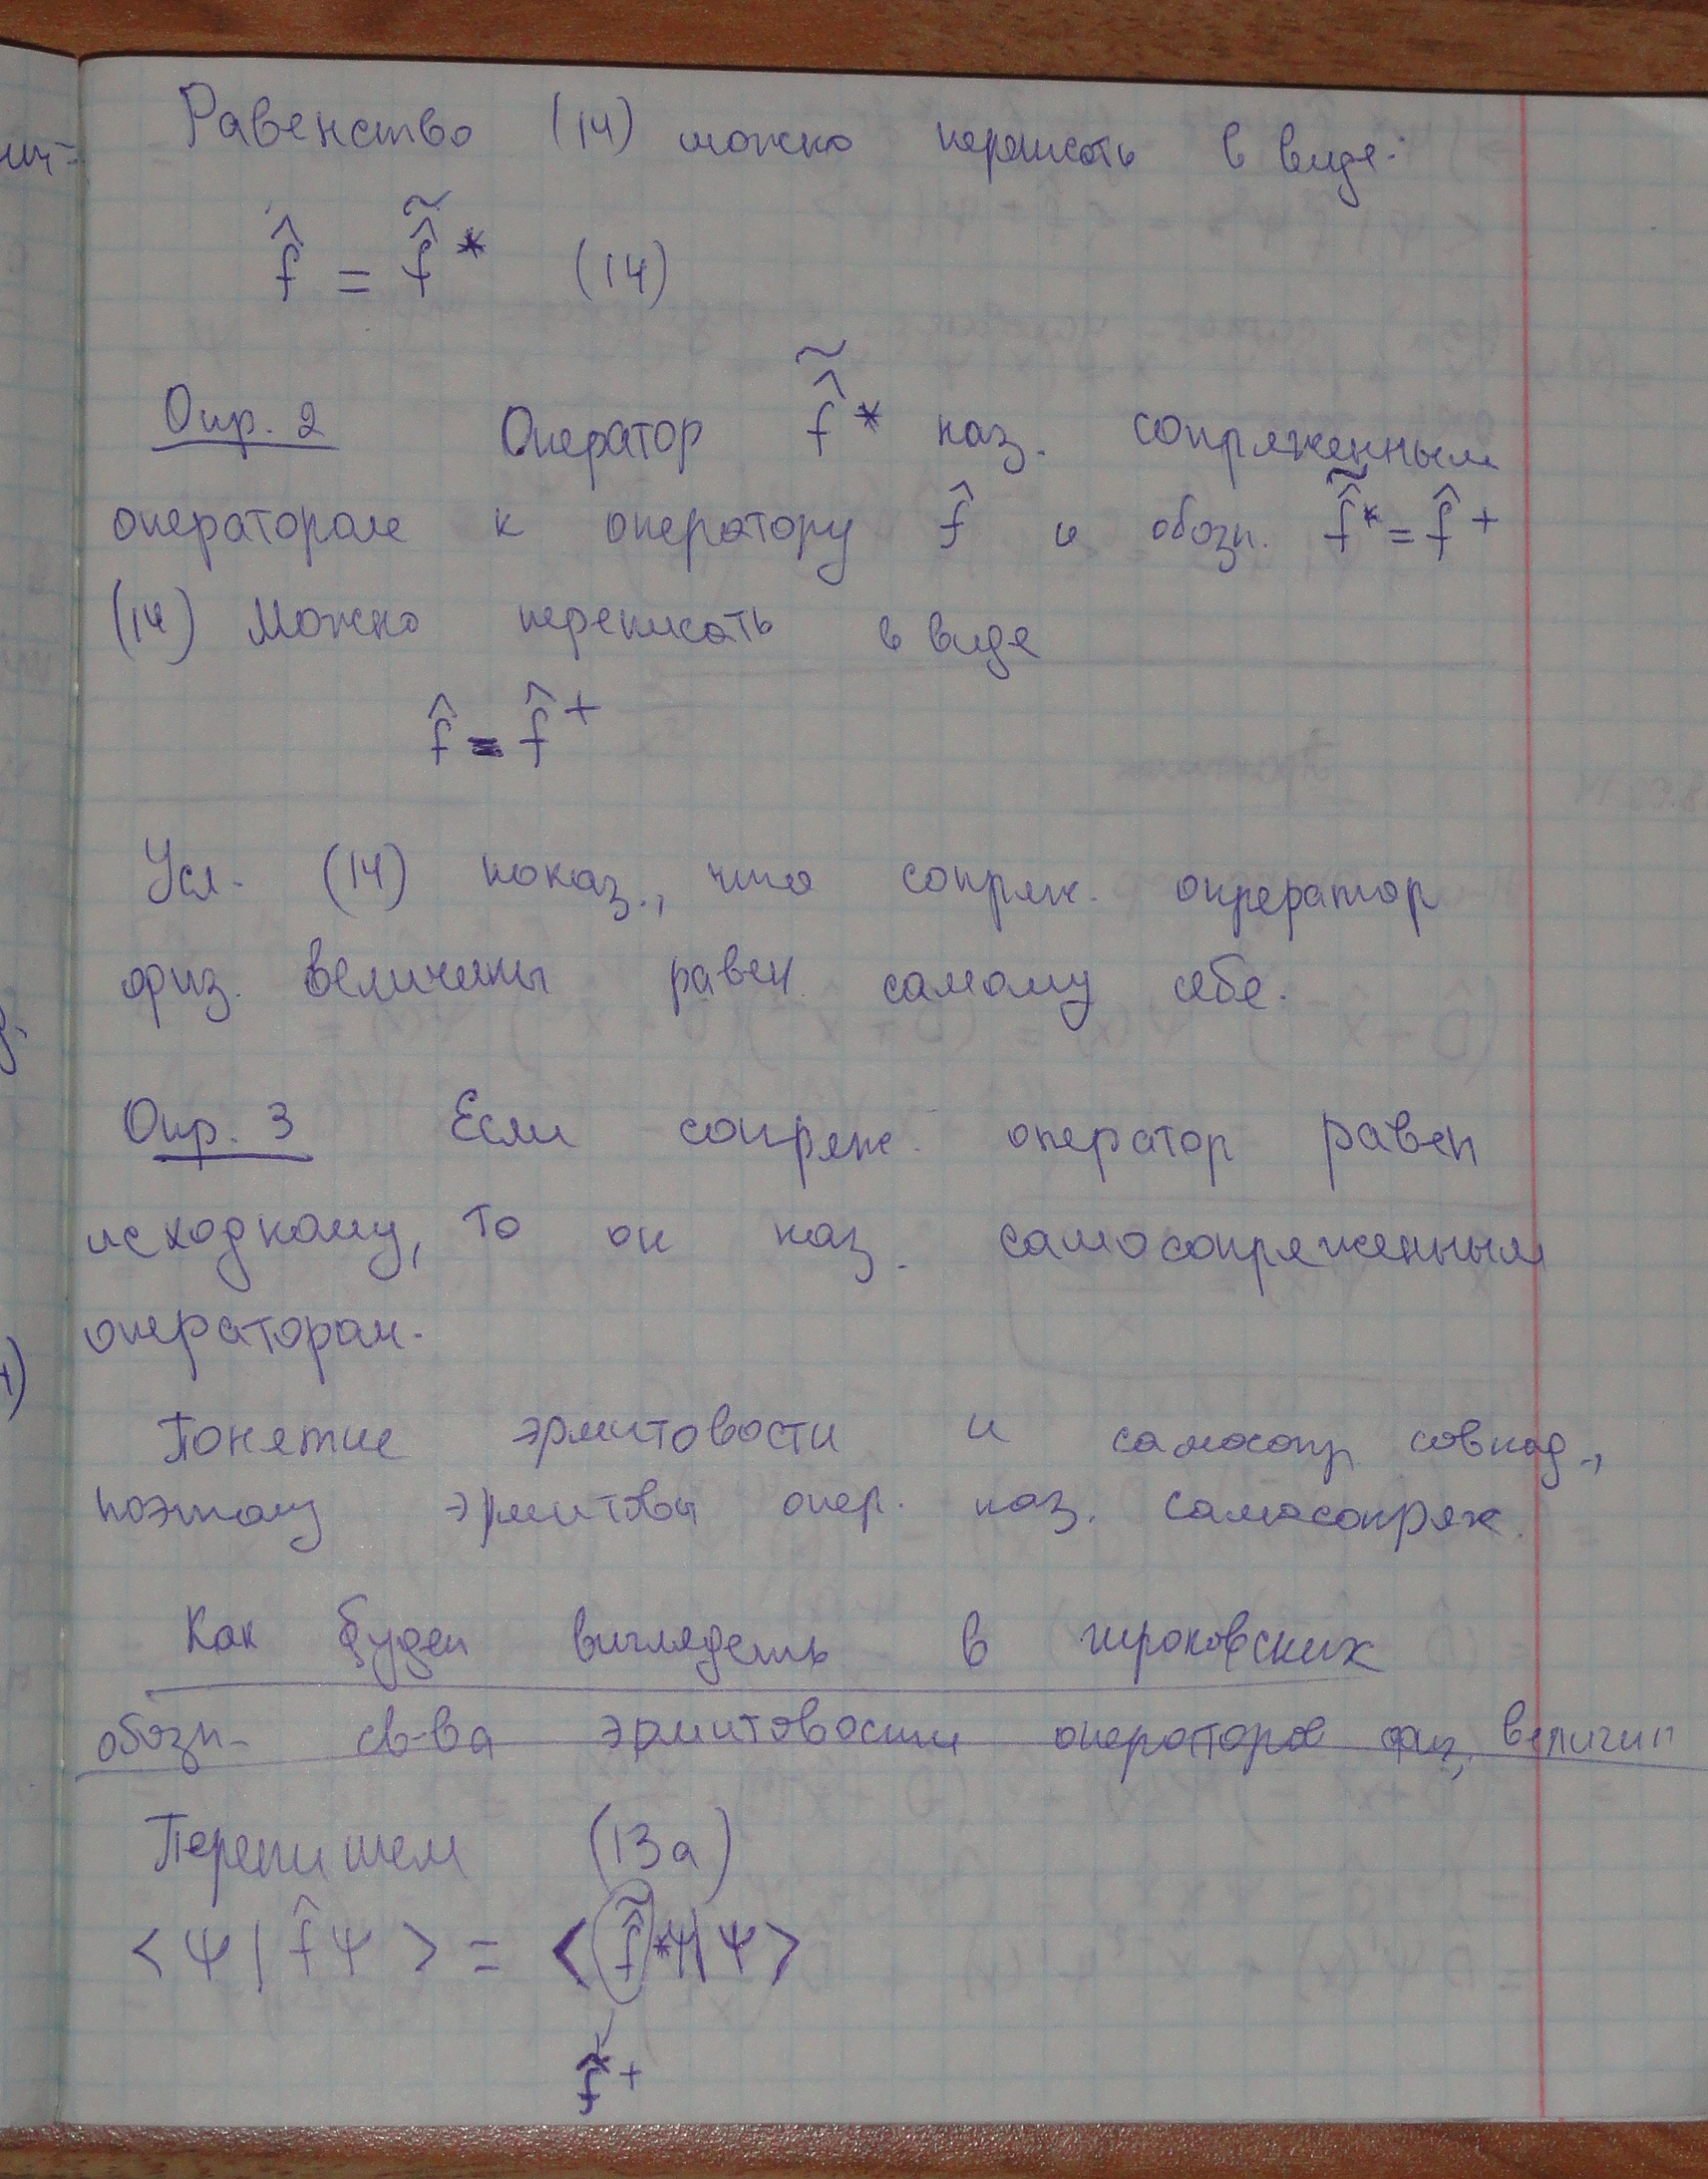 Равенство (14) можно переписать в виде:
f̂ = f̂̃* (14)
Опр. 2 Оператор f̂̃* наз. сопряженным
оператором к оператору f̂ и обозн. f̂̃* = f̂⁺
(14) Можно переписать в виде
f̂ = f̂⁺
Усл. (14) показ., что сопряж. опрератор
физ. величины равен самому себе.
Опр. 3 Если сопряж. оператор равен
исходному, то он наз. самосопряженным
оператором.
Понятие эрмитовости и самосопр. совпад.,
поэтому эрмитовы опер. наз. самосопряж.
Как будет выглядеть в
обозн. св-ва эрмитовости операторов физ. величин
Перепишем (13а)
<Ψ|f̂Ψ> = <f̂̃*Ψ|Ψ>
f̂⁺